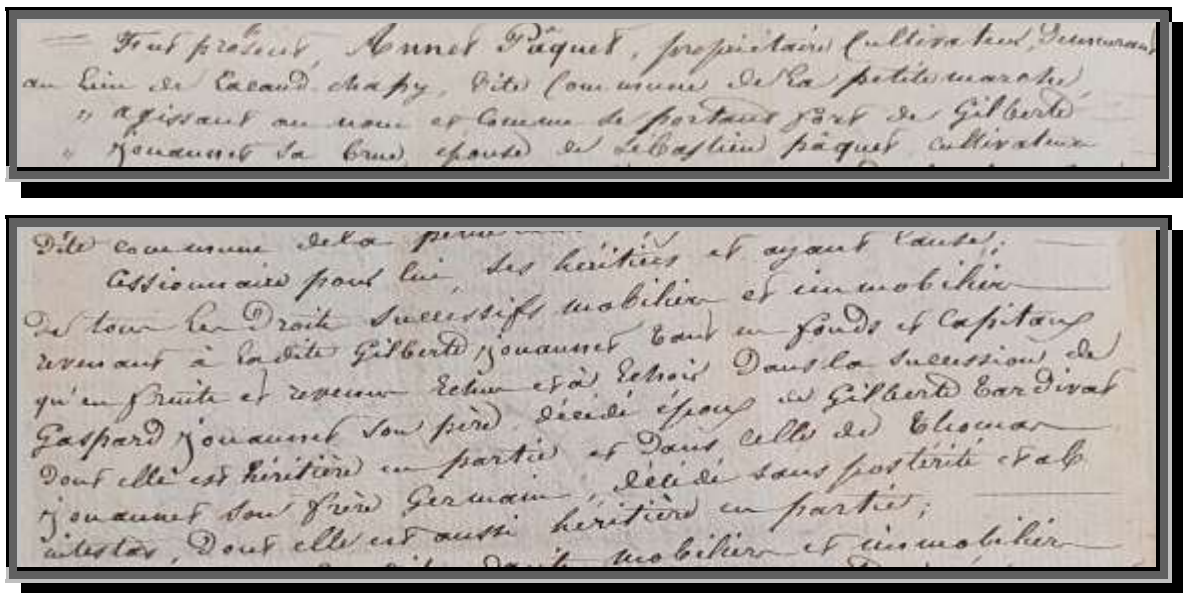 Fut présent, Annet Pâquet, propriétaire Cultivateur, Demeurant
au Lieu de chapy, dite Commune de La petite marche,
" agissant au nom et Comme se portant fort de Gilberte
" Jouannet sa brue, épouse de Sébastien pâquet cultivateur
Dite commune dela
Cessionnaire pour lui, ses héritiers et ayant Cause;
De tous les Droits Successifs mobiliers et immobiliers
revenant à Ladite Gilberte Jouannet tant en fonds et Capitaux
qu'en fruits et revenus Echus et à Echoir Dans la succession de
Gaspard Jouannet son père, décédé époux de Gilberte Tardivat
Dont elle est héritière en partie et Dans celle de Thomas
Jouannet son frère Germain, décédé sans postérité et ab
intestat, Dont elle est aussi héritière en partie;
mobiliers et immobiliers